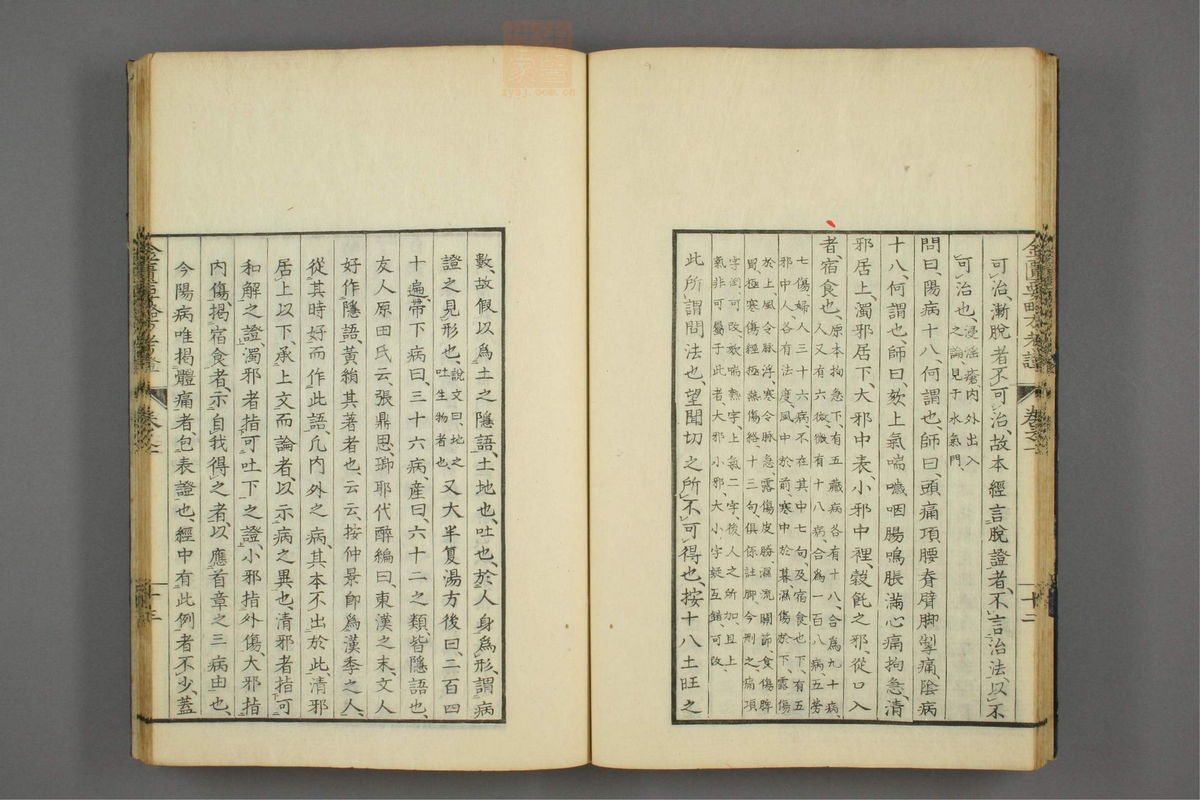 可治、漸脫者不可治、故本經言脫證者、不言治法、以不
可治也、浸淫瘡、內外出入
之論見于水氣門、
問曰、陽病十八、何謂也、師曰、頭痛項腰脊臂脚掣痛、陰病
十八、何謂也、師曰、欬上氣喘噦咽腸鳴脹滿心痛拘急、清
邪居上、濁邪居下、大邪中表、小邪中裡、穀飥之邪、從口入
者、宿食也、原本拘急下、有五藏病各有十八、合為九十病、
人又有六微、微有十八病、合為一百八病、五勞
七傷婦人三十六病、不在其中七句、及宿食也下、有五
邪中人、各有法度、風中於前、寒中於暮、濕傷於下、霧傷
於上、風令脉浮、寒令脉急、霧傷皮腠、濕流關節、食傷脾
胃、極寒傷經極熱傷絡、十三句、俱係註脚、今刑之、痛項
字間可改欬喘熱字、上氣二字、後人之所加、且上
氣非可屬于此者、大邪小邪、大小字疑互錯可改、
此所謂問法也、望聞切之所不可得也、按十八土旺之
數、故假以爲土之隱語、土地也、吐也、於人身爲形、謂病
證之見形也、說文曰、地之
吐生物者也、又大半夏湯方後曰、二百四
十遍、帶下病曰、三十六病、産曰、六十二之類、皆隱語也、
友人原田氏云、張鼎思、瑯耶代醉編曰、東漢之末、文人
好作隱語、黃絹其著者也、云云、按仲景卽爲漢季之人、
從其時好而作此語、凡內外之病、其本不出於此、清邪
居上以下、承上文而論者、以示病之異也、清邪者指可
和解之證、濁邪者指可吐下之證、小邪指外傷、大邪指
內傷、揭宿食者、示自我得之者、以應首章之三病由也、
今陽病唯揭體痛者包表證也、經中有此例者不少、蓋
金匱要略方考證
卷之一
十二
zysj.com.cn